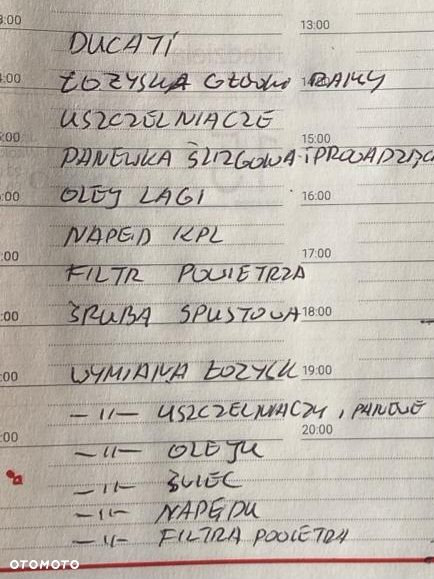 13:00
DUCATI
ŁOŻYSKA GŁÓWKI RAMY
USZCZELNIACZE
15:00
PANEWKA ŚLIZGOWA I PROWADZĄC
OLEJ LAGI
16:00
NAPĘD KPL
17:00
FILTR POWIETRZA
ŚRUBA SPUSTOWA
18:00
WYMIANA ŁOŻYSK
19:00
—〃— USZCZELNIACZY, PANEWE
20:00
—〃— OLEJU
—〃— ŚWIEC
—〃— NAPĘDU
—〃— FILTRA POWIETRZA
OTOMOTO